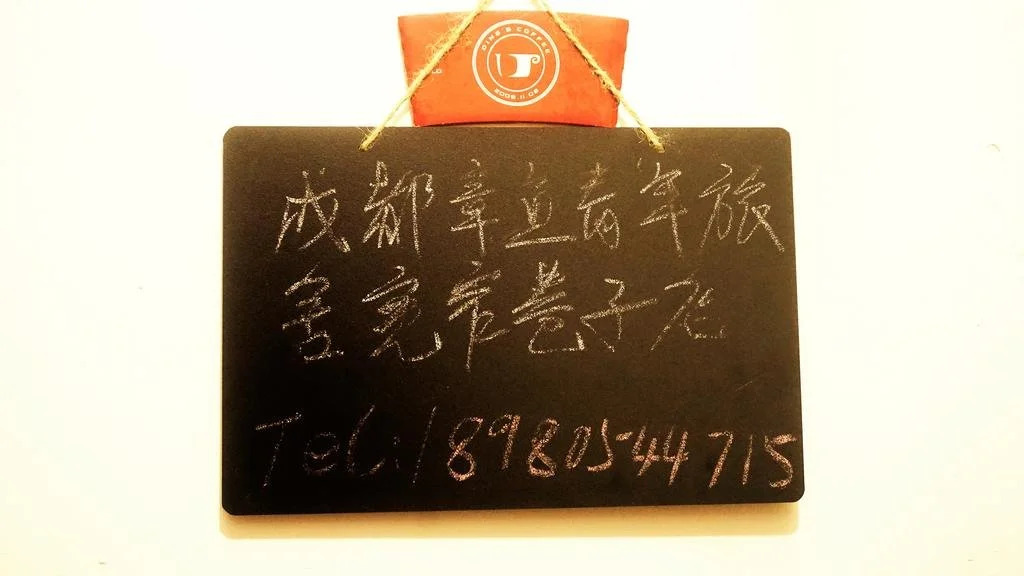 DING'S COFFEE
2009.11.09
成都章宜青年旅
舍宽窄巷子店
Tel:18980544715